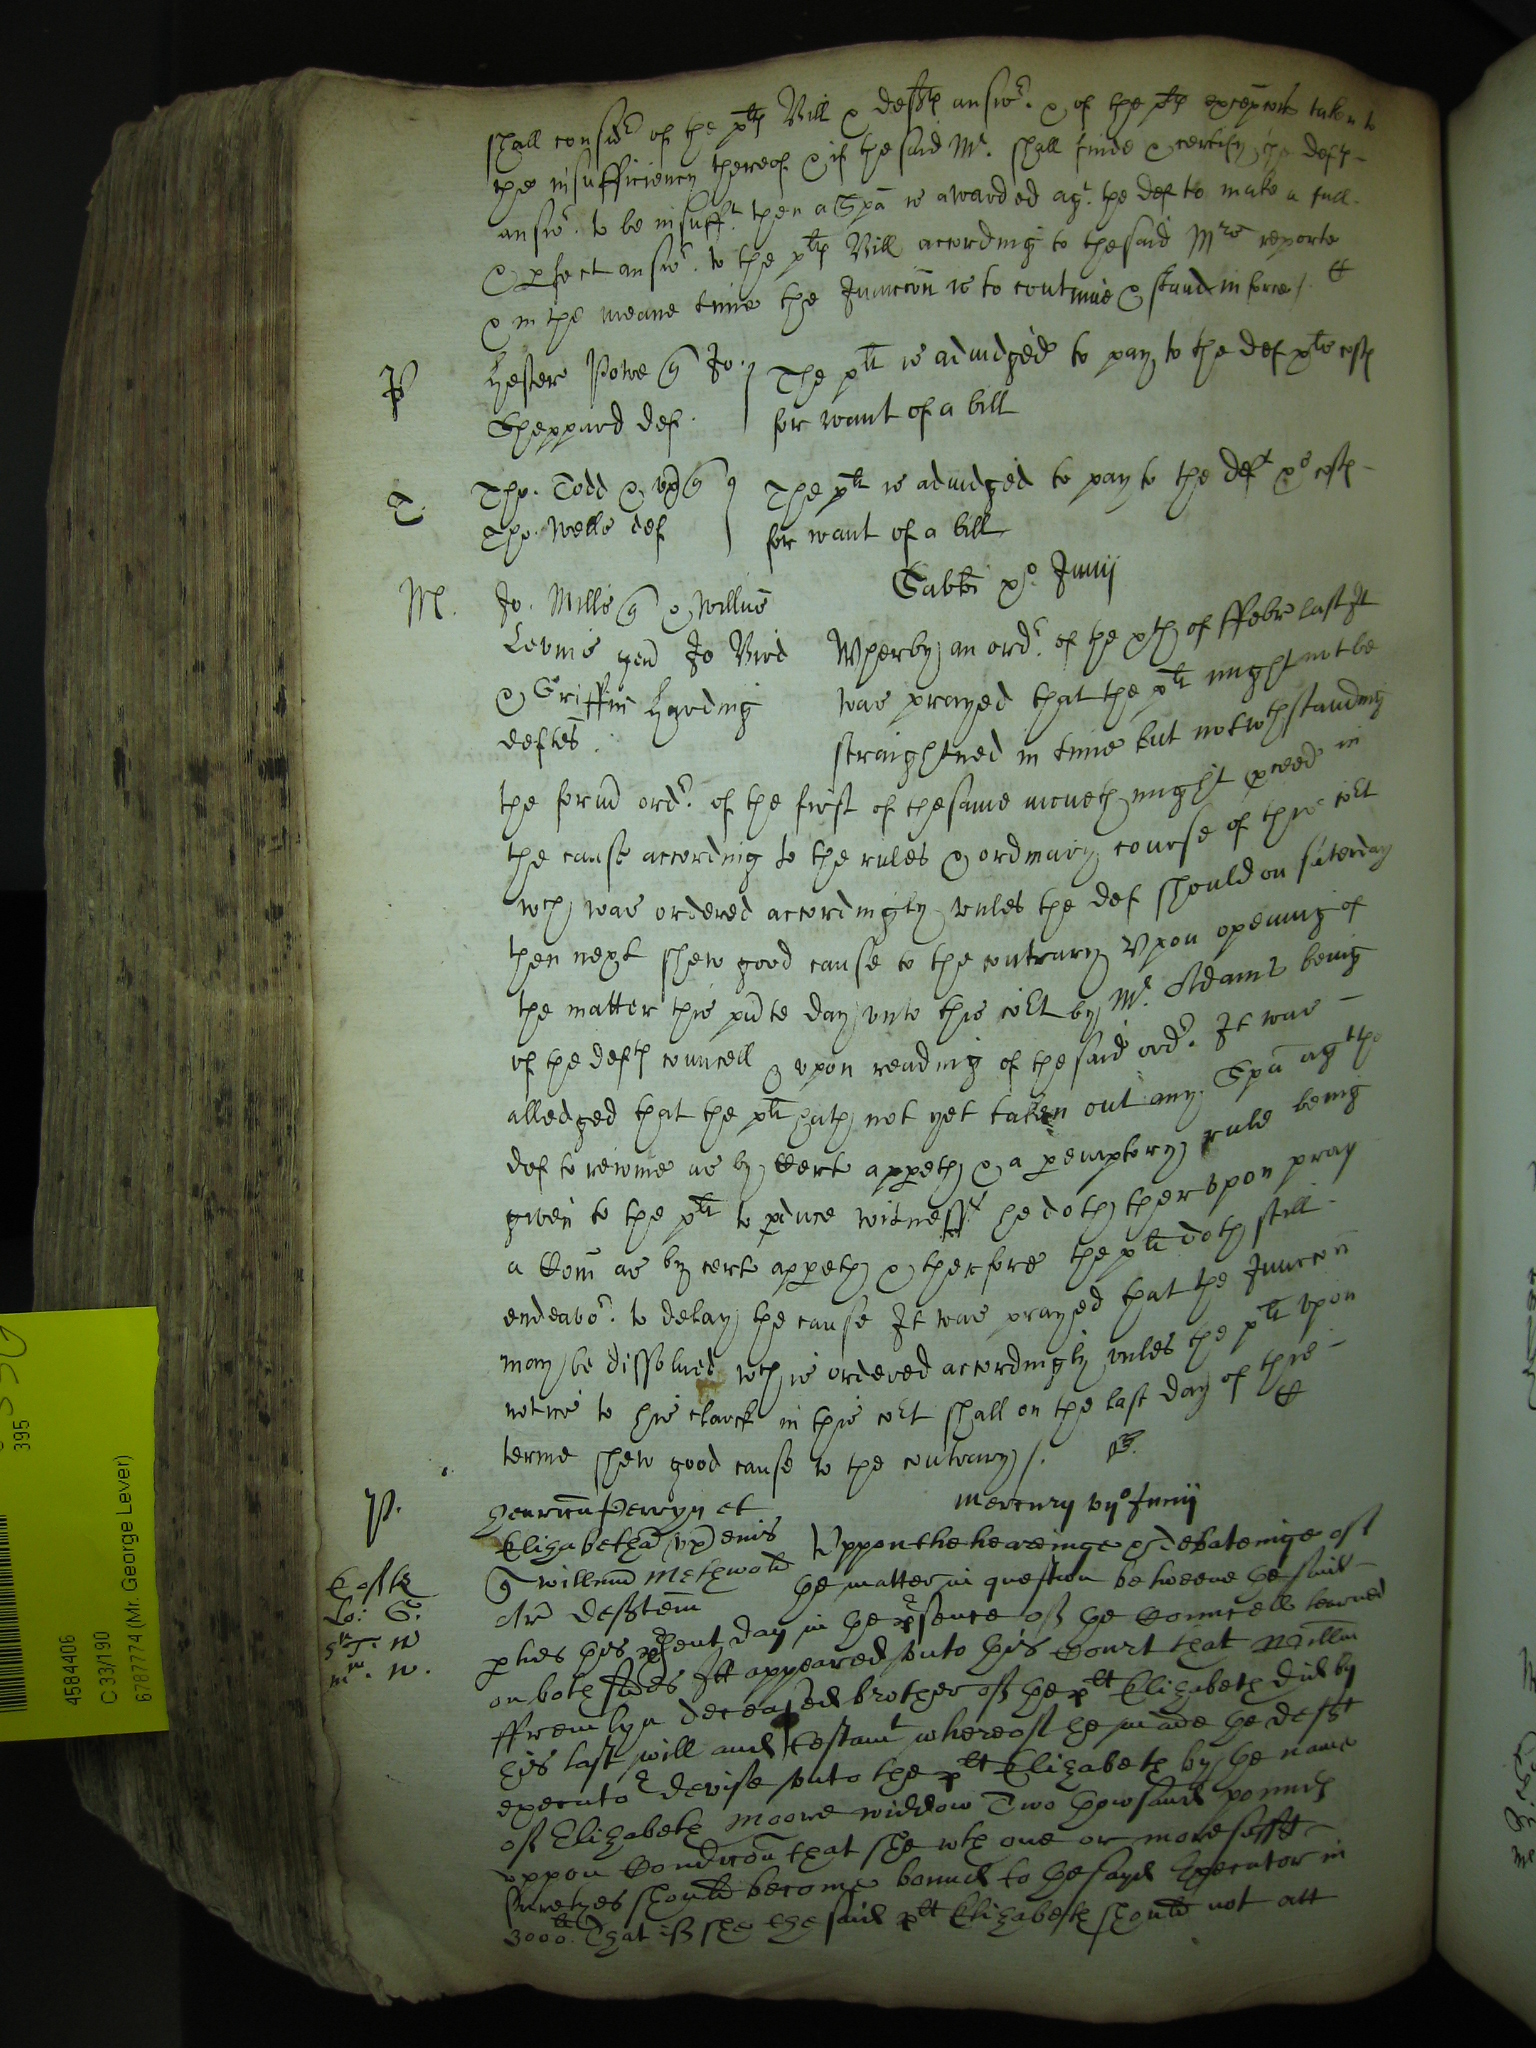 shall consid^r of the pl^ts Bill & deft^s answ^r. & of the pl^ts excepcons taken to
the insufficiency thereof & if the said M^r. shall finde & certify the deft^s
answ^r. to be insuff^t. then a Spa is awarded ag^t. the def to make a full
& pfect answ^r. to the pl^ts Bill according to the said M^rs reporte
& in the meane time the Iniuccon is to continue & stand in force /.
P
Hester Powe q Jo.
Sheppard def.
The pl^t is adiudged to pay to the def costs
for want of a bill
T.
Tho. Todd & ux q
Tho. Wells def
The pl^t is adiudged to pay to the def^t costs
for want of a bill
Sabbi p^o. Junij
M.
Jo. Mills q & Willus
Lewins gen Jo Bird
& Griffin Harding
deftes.
Wherby an ord^r. of the xth of ffebr last It
was prayed that the pl^t might not be
straightned in time but notwthstanding
the formd ord^r. of the first of the same moneth might pceed in
the cause according to the rules & ordinary course of this cort
wch was ordered accordingly vnles the def should on saterday
then next shew good cause to the contrary Vpon opening of
the matter this pnte day vnto this cort by M^r. Adams being
of the deft^s councell & vpon reading of the said ord^r. It was
alledged that the pl^t hath not yet taken out any Spa ag^t the
def to reioine as by Cert appeth & a pemptory rule being
given to the pl^t to pduce witness^s he doth thervpon pray
a Com as by cert appeth & therfore the pl^t doth still
endeavo^r. to delay the cause It was prayed that the Iniuccon
may be dissolued wch is ordered accordingly vnles the pl^t vpon
notice to his clarck in this cort shall on the last day of this
terme shew good cause to the contrary /.
Mercury vij^o Junij
P.
Henricu Perryn et
Elizabetha ux eius
q Willmu Methwold
Ar defftem
Costs
Lo: G:
Vppon the hearinge & debateinge of
he matter in question betweene he said
pties this psent day in he psence of he Councell learned
on both sides Itt appeared vnto his Court that Willm
ffremlyn deceased brother of he pl^t Elizabeth did by
his last will and testam^t whereof he made he deff^t
executo^r devise vnto the pl^t Elizabeth by he name
of Elizabeth Moore widdow Two thowsand pounds
vppon Condicon that she wth one or more suff^t
suretyes should become bound to he sayd Executor in
3000^li That iff she the said pl^t Elizabeth should not att
395
4584406
C 33/190
6787774 (Mr. George Lever)